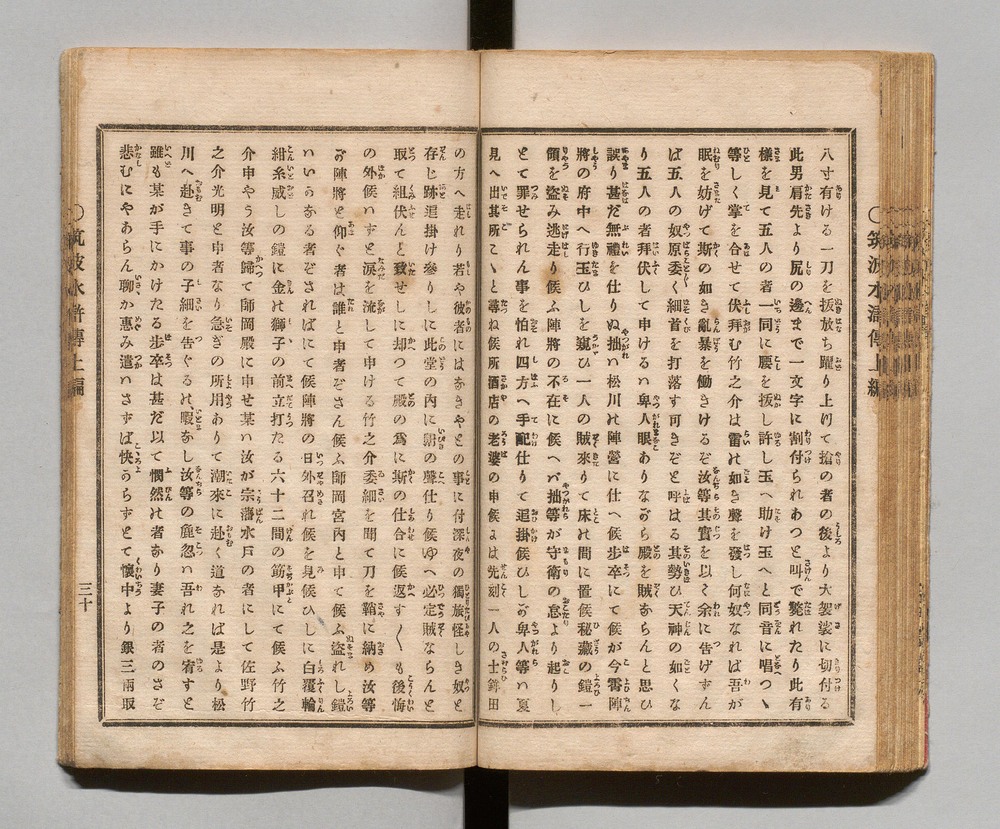 八寸有ける一刀を拔放ち躍り上りて搶の者の後より大袈裟に切付る
此男肩先より尻の邊まで一文字に割付られあつと叫で斃れたり此有
樣を見て五人の者一同に腰を拔し許し玉へ助け玉へと同音に唱つゝ
等しく掌を合せて伏拜む竹之介は雷の如き聲を發し何奴なれば吾が
眠を妨げて斯の如き亂暴を働きけるぞ汝等其實を以て余に告げずん
ば五人の奴原委く細首を打落す可きぞと呼はる其勢ひ天神の如くな
り五人の者拜伏して申けるハ卑人眼ありながら殿を賊ならんと思ひ
誤り甚だ無禮を仕りぬ抽ハ松川の陣營に仕へ候歩卒にて候が今霄陣
將の府中へ行玉ひしを窺ひ一人の賊來りて床の間に置候秘藏の鎧一
領を盗み逃走り候ふ陣將の不在に候へバ拙等が守衛の怠より起りし
とて罪せられん事を怕れ四方へ手配仕りて追掛候ひしが卑人等ハ夏
見へ出其所こゝと尋ね候所酒店の老婆の申候には先刻一人の士鉾田
の方へ走れり若や彼者にはなきやとの事に付深夜の獨旅怪しき奴と
存じ跡追掛け參りしに此堂の内に鼾の聲仕り候ゆへ必定賊ならんと
取て組伏んと致せしに却つて殿の爲に斯の仕合に候返す〱も後悔
の外候ハずと淚を流して申ける竹之介委細を聞て刀を鞘に納め汝等
が陣將と仰ぐ者は誰と申者ぞさん候ふ師岡宮内と申て候ふ盜れし鎧
ハいかなる者ぞさればにて候陣將の日外召れ候を見候ひしに白覆輪
紺糸威しの鎧に金の獅子の前立打たる六十二間の筋甲にて候ふ竹之
介申やう汝等歸つて師岡殿に申せ某ハ汝が宗藩水戸の者にして佐野竹
之介光明と申者なり急ぎの所用ありて潮來に赴く道なれば是より松
川へ赴きて事の子細を告ぐるの暇なし汝等の麁忽ハ吾れ之を宥すと
雖も某が手にかけたる歩卒は甚だ以て憫然の者なり妻子の者のさぞ
悲むにやあらん聊か惠み遣ハさずば快からずとて懷中より銀三兩取
〇筑波水滸傳上編
三十
〇筑波水滸傳上編